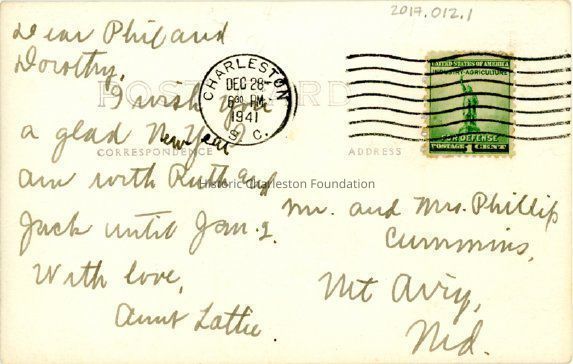 2017.012.1
Dear Phil and
Dorothy,
POST CARD
I wish you
a glad New Year
New Year
I
am with Ruth and
Jack until Jan. 2.
With love,
Aunt Lottie.
CORRESPONDENCE
ADDRESS
CHARLESTON
DEC 28
6 30 PM
1941
S. C.
UNITED STATES OF AMERICA
INDUSTRY-AGRICULTURE
FOR DEFENSE
POSTAGE 1 CENT
Historic Charleston Foundation
Mr. and Mrs. Phillip
Cummins,
Mt Airy,
Md.